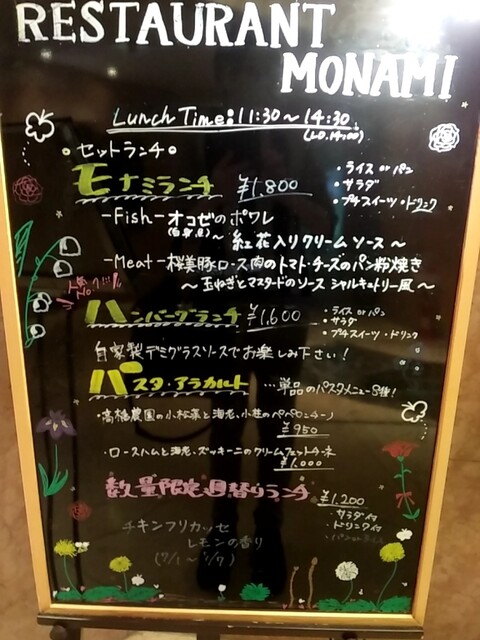 RESTAURANT
MONAMI
Lunch Time:11:30～14:30
(LO.14:00)
・セットランチ・
モナミランチ ¥1,800
・ライス or パン
・サラダ
・プチスイーツ・ドリンク
-Fish- オコゼのポワレ
(白身魚)～紅花入りクリームソース～
-Meat- 桜美豚ロース肉のトマト・チーズのパン粉焼き
～玉ねぎとマスタードのソース シャルキュトリー風～
人気No.1!!!
ハンバーグランチ ¥1,600
・ライス or パン
・サラダ
・プチスイーツ・ドリンク
自家製デミグラスソースでお楽しみ下さい!
パスタ・アラカルト …単品のパスタメニュー8種!
・高橋農園の小松菜と海老、小柱のペペロンチーノ
¥950
・ロースハムと海老、ズッキーニのクリームフェットチーネ
¥1,000
数量限定週替りランチ ¥1,200
・サラダ付
・ドリンク付
チキンフリカッセ
レモンの香り
(7/1～7/7)